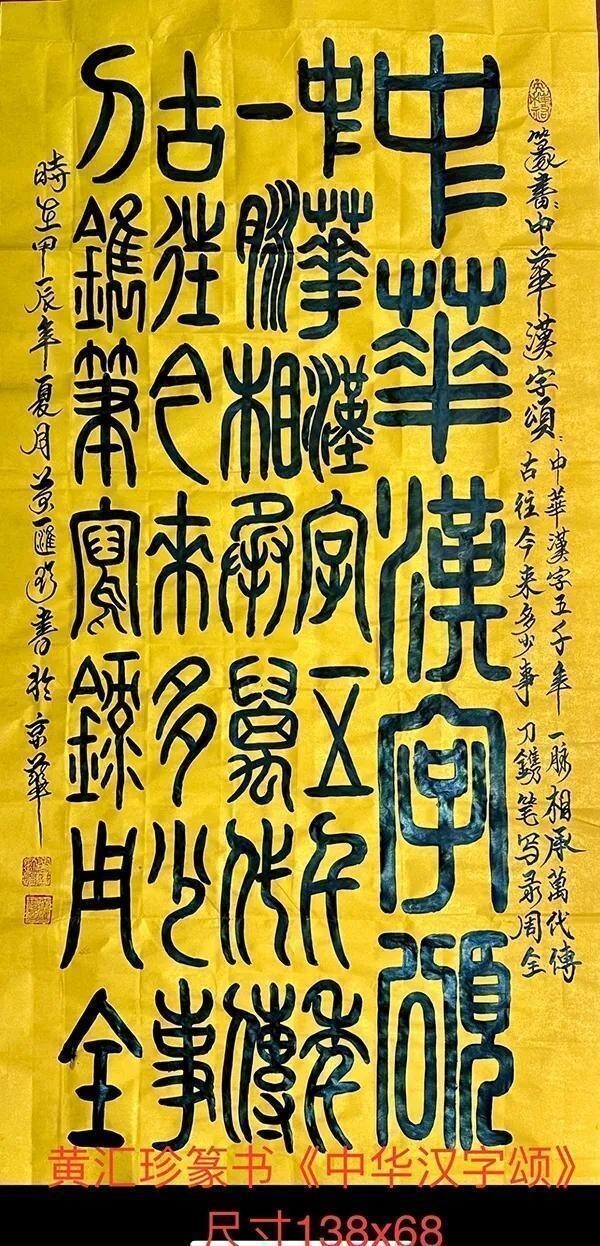 篆書:中華漢字頌:中華漢字五千年 一脉相承萬代傳
古往今来多少事 刀鐫笔写录周全
中華漢字頌
中華漢字五千年
一脈相承萬代傳
古往今來多少事
刀鐫筆寫錄周全
時在甲辰年夏月黄匯珍書於京華
黄汇珍篆书《中华汉字颂》
尺寸138x68